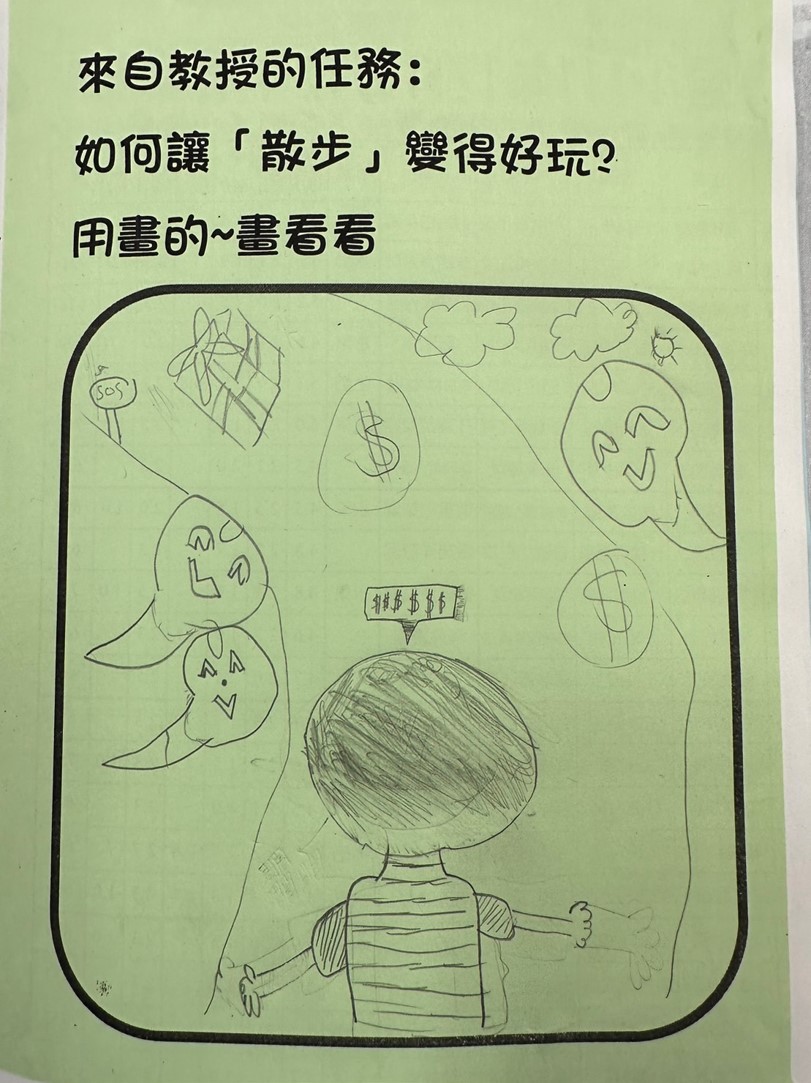 來自教授的任務：
如何讓「散步」變得好玩?
用畫的~畫看看
SOS
$
$
$$$$$$